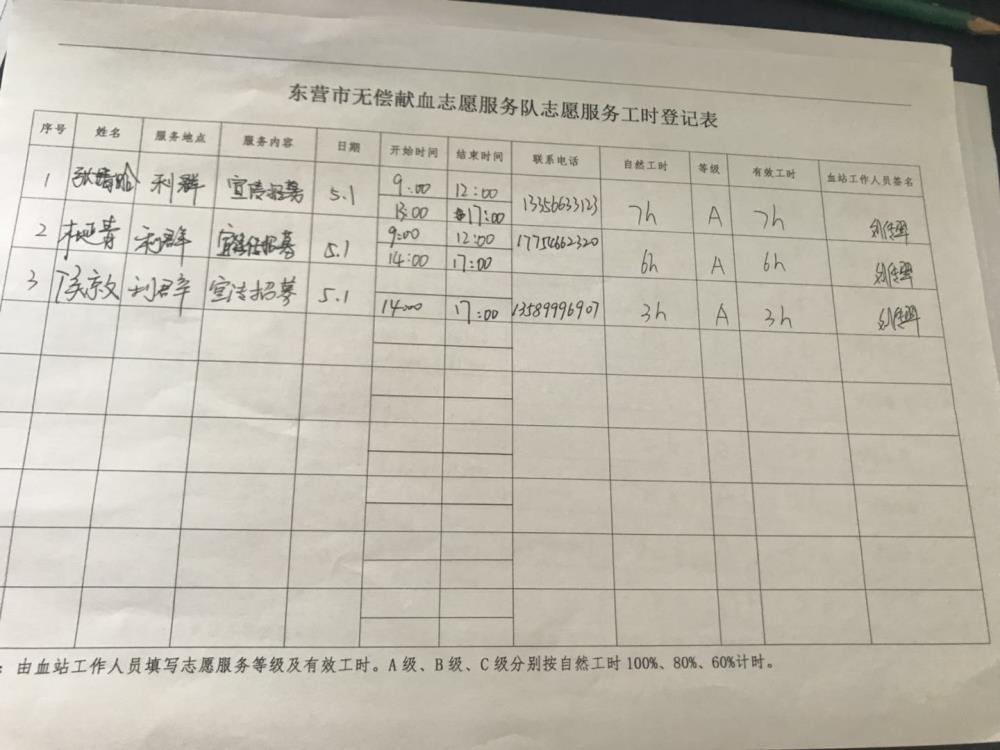 东营市无偿献血志愿服务队志愿服务工时登记表
序号 姓名 服务地点 服务内容 日期 开始时间 结束时间 联系电话 自然工时 等级 有效工时 血站工作人员签名
1 利群 宣传招募 5.1 9:00 12:00 13356633123 7h A 7h
13:00 17:00
2 利群 宣传招募 5.1 9:00 12:00 17754662320 6h A 6h
14:00 17:00
3 利群 宣传招募 5.1 14:00 17:00 13589996907 3h A 3h
：由血站工作人员填写志愿服务等级及有效工时。A级、B级、C级分别按自然工时100%、80%、60%计时。